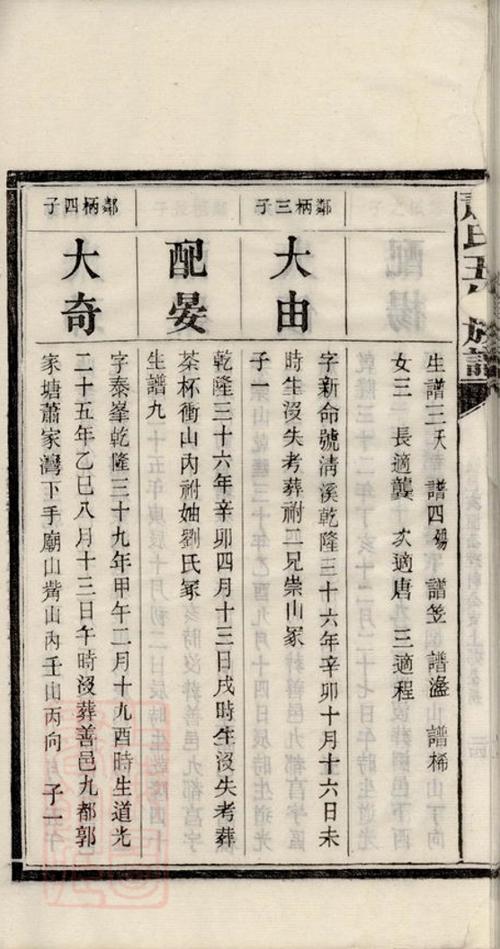 氏五 族譜
生譜三 譜四 譜笠 譜 譜稀
女三 長適龔 次適唐 三適程
鄰柄三子
大由
字新命號淸溪乾隆三十六年辛卯十月十六日未
時生沒失考葬祔二兄崇山冢
子一
配晏
乾隆三十六年辛卯四月十三日戌時生沒失考葬
茶杯衝山內祔妯劉氏冢
生譜九
鄰柄四子
大奇
字泰峯乾隆三十九年甲午二月十九酉時生道光
二十五年乙巳八月十三日午時沒葬善邑九都郭
家塘蕭家灣下手廟山觜山內壬山丙向 子一